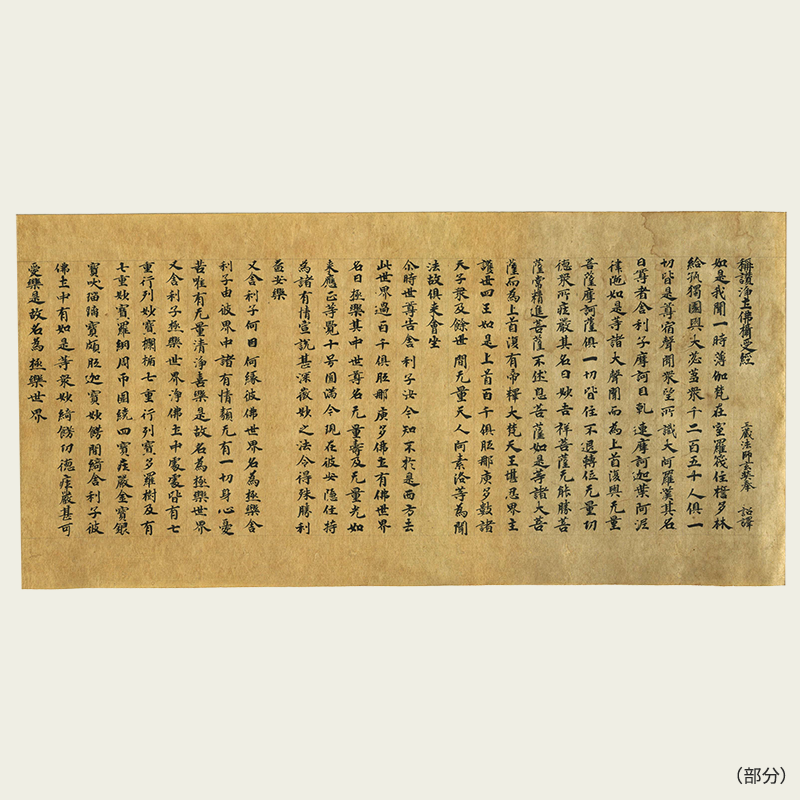 稱讃淨土佛攝受經　三藏法師玄奘奉　詔譯
如是我聞一時薄伽梵在室羅筏住誓多林
給孤獨園與大苾蒭衆千二百五十人俱一
切皆是尊宿聲聞衆望所識大阿羅漢其名
曰尊者舍利子摩訶目乹連摩訶迦葉阿泥
律陁如是等諸大聲聞而為上首復與无量
菩薩摩訶薩俱一切皆住不退轉位无量功
德衆所疰嚴其名曰妙吉祥菩薩无能勝菩
薩常精進菩薩不休息菩薩如是等諸大菩
薩而為上首復有帝釋大梵天王堪忍界主
護世四王如是上首百千俱胝那庾多數諸
天子衆及餘世間无量天人阿素洛等為聞
法故俱来會坐
尒時世尊告舍利子汝今知不於是西方去
此世界過百千俱胝那庾多佛土有佛世界
名曰極樂其中世尊名无量壽及无量光如
来應正等覺十号圓滿今現在彼安隱住持
為諸有情宣說甚深微妙之法令得殊勝利
益安樂
又舍利子何因何緣彼佛世界名為極樂舍
利子由彼界中諸有情類无有一切身心憂
苦唯有无量清淨喜樂是故名為極樂世界
又舍利子極樂世界淨佛土中處處皆有七
重行列妙寶欄楯七重行列寶多羅樹及有
七重妙寶羅網周帀圍繞四寶疰嚴金寶銀
寶吠瑠璃寶頗胝迦寶妙餝間綺舍利子彼
佛土中有如是等衆妙綺餝功德疰嚴甚可
愛樂是故名為極樂世界
（部分）